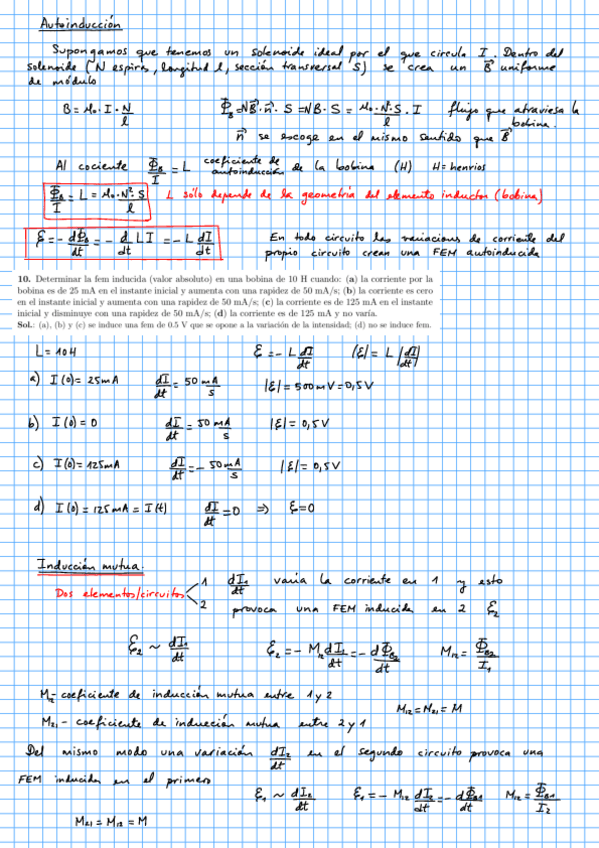 Autoinducción
Supongamos que tenemos un solenoide ideal por el que circula I. Dentro del
solenoide (N espiras, longitud l, sección transversal S) se crea un B⃗ uniforme
de módulo
B = μ₀·I·N/l    Φ_B = N B⃗·n⃗·S = NB·S = μ₀·N²·S/l · I    flujo que atraviesa la
bobina.
n⃗ se escoge en el mismo sentido que B⃗
Al cociente Φ_B/I = L coeficiente de autoinducción de la bobina (H)    H = henrios
Φ_B/I = L = μ₀·N²·S/l    L sólo depende de la geometría del elemento inductor (bobina)
ℰ = - dΦ_B/dt = - d/dt LI = - L dI/dt    En todo circuito las variaciones de corriente del
propio circuito crean una FEM autoinducida
10. Determinar la fem inducida (valor absoluto) en una bobina de 10 H cuando: (a) la corriente por la
bobina es de 25 mA en el instante inicial y aumenta con una rapidez de 50 mA/s; (b) la corriente es cero
en el instante inicial y aumenta con una rapidez de 50 mA/s; (c) la corriente es de 125 mA en el instante
inicial y disminuye con una rapidez de 50 mA/s; (d) la corriente es de 125 mA y no varía.
Sol.: (a), (b) y (c) se induce una fem de 0.5 V que se opone a la variación de la intensidad; (d) no se induce fem.
L = 10H    ℰ = - L dI/dt    |ℰ| = L |dI/dt|
a) I(0) = 25mA    dI/dt = 50 mA/s    |ℰ| = 500 mV = 0,5 V
b) I(0) = 0    dI/dt = 50 mA/s    |ℰ| = 0,5 V
c) I(0) = 125mA    dI/dt = - 50 mA/s    |ℰ| = 0,5V
d) I(0) = 125 mA = I(t)    dI/dt = 0 ⇒ ℰ = 0
Inducción mutua.
Dos elementos/circuitos 1 2    dI₁/dt varía la corriente en 1 y esto
provoca una FEM inducida en 2 ℰ₂
ℰ₂ ~ dI₁/dt    ℰ₂ = - M₁₂ dI₁/dt = - dΦ_B2/dt    M₁₂ = Φ_B2/I₁
M₁₂ - coeficiente de inducción mutua entre 1 y 2
M₁₂ = M₂₁ = M
M₂₁ - coeficiente de inducción mutua entre 2 y 1
Del mismo modo una variación dI₂/dt en el segundo circuito provoca una
FEM inducida en el primero
ℰ₁ ~ dI₂/dt    ℰ₁ = - M₁₂ dI₂/dt = - dΦ_B1/dt    M₁₂ = Φ_B1/I₂
M₂₁ = M₁₂ = M